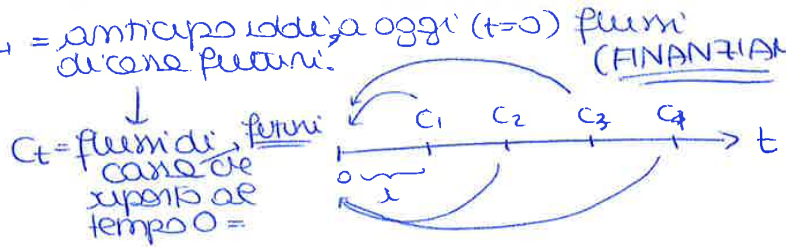 = anticipo soldi, a oggi (t=0) flussi
di cassa futuri. (FINANZIAM
Ct = flussi di futuri
cassa che
riporto al
tempo 0 =
C1 C2 C3 C4 t
0